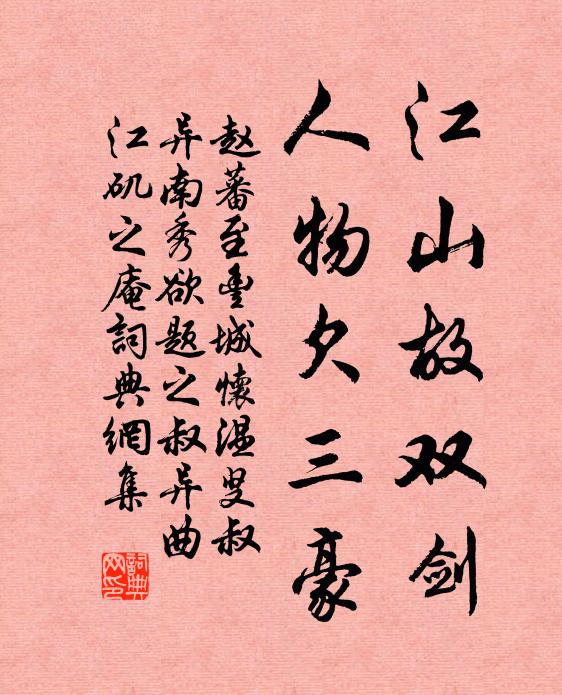 江山故双剑
人物欠三豪
赵蕃至丰城怀温叟叔
异南秀欲题之叔异曲
江矶之庵詞典網集
詞典网印